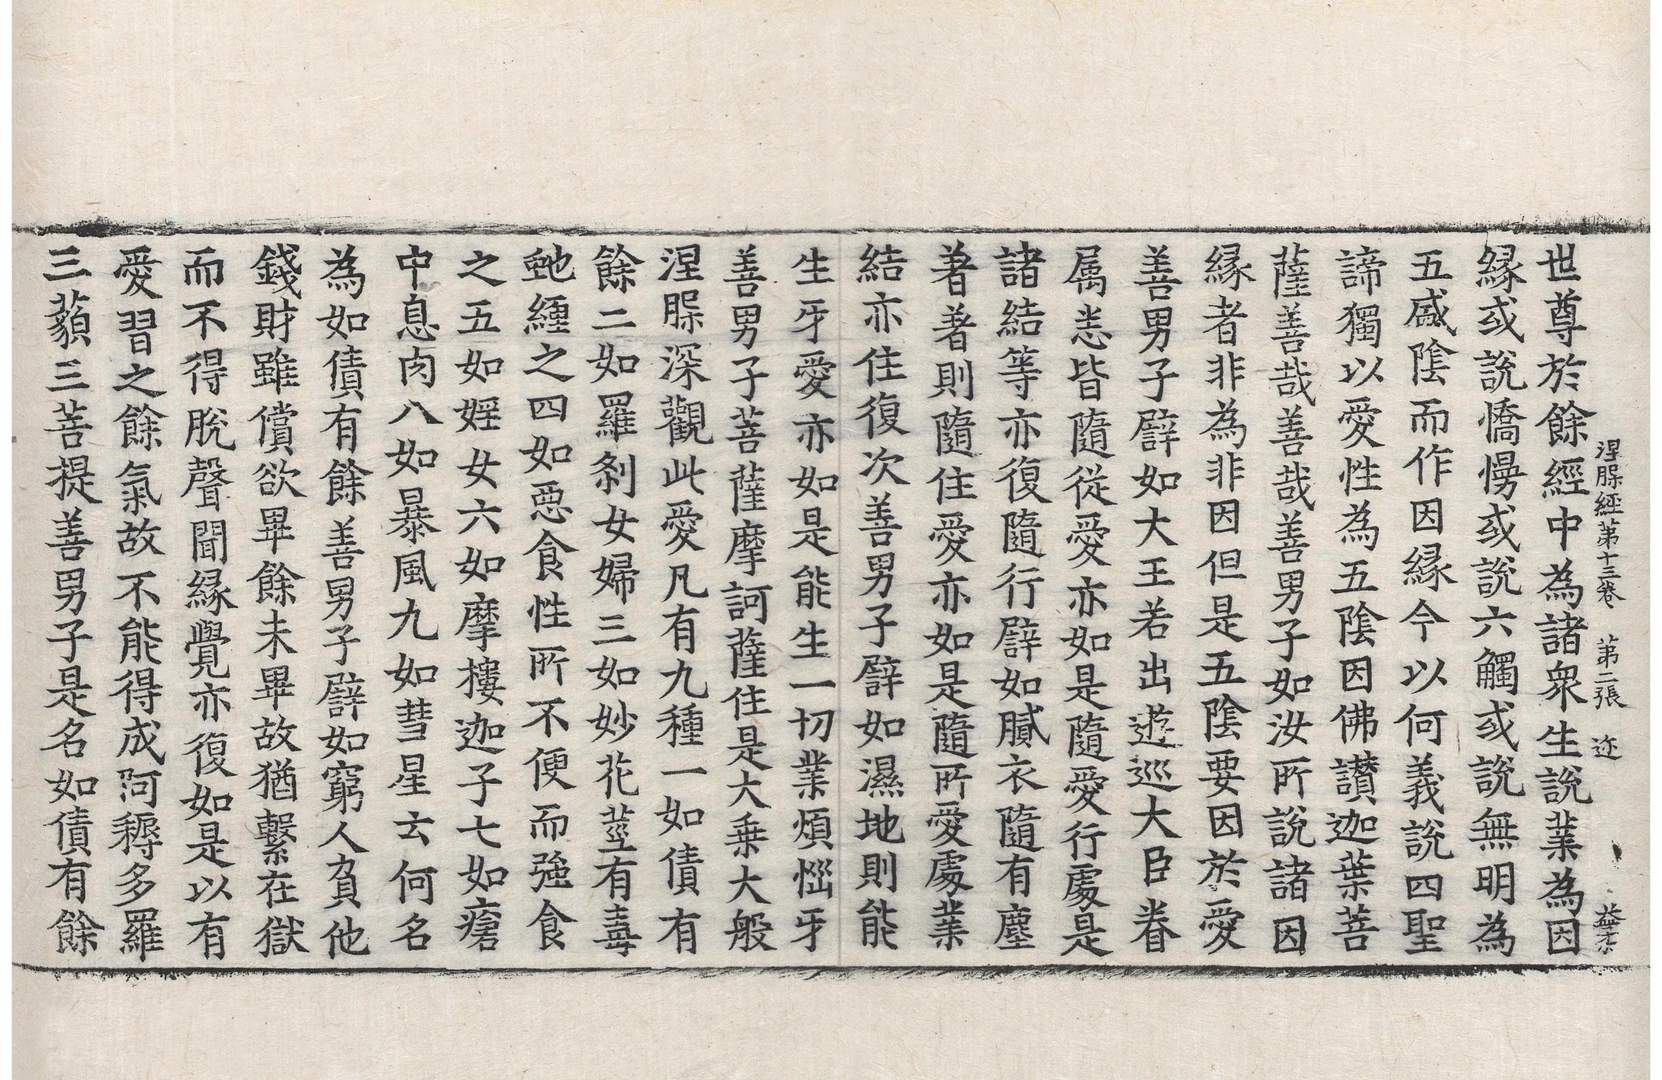 涅槃經第十三卷　第二張　迩
世尊於餘經中為諸眾生說業為因
緣或說憍慢或說六觸或說無明為
五盛陰而作因緣今以何義說四聖
諦獨以愛性為五陰因佛讚迦葉菩
薩善哉善哉善男子如汝所說諸因
緣者非為非因但是五陰要因於愛
善男子譬如大王若出遊巡大臣眷
属悉皆隨從愛亦如是隨愛行處是
諸結等亦復隨行譬如膩衣隨有塵
著著則隨住愛亦如是隨所愛處業
結亦住復次善男子譬如濕地則能
生牙愛亦如是能生一切業煩惱牙
善男子菩薩摩訶薩住是大乘大般
涅槃深觀此愛凡有九種一如債有
餘二如羅刹女婦三如妙花莖有毒
虵纏之四如惡食性所不便而強食
之五如婬女六如摩樓迦子七如瘡
中息肉八如暴風九如彗星云何名
為如債有餘善男子譬如窮人負他
錢財雖償欲畢餘未畢故猶繫在獄
而不得脫聲聞緣覺亦復如是以有
愛習之餘氣故不能得成阿耨多羅
三藐三菩提善男子是名如債有餘